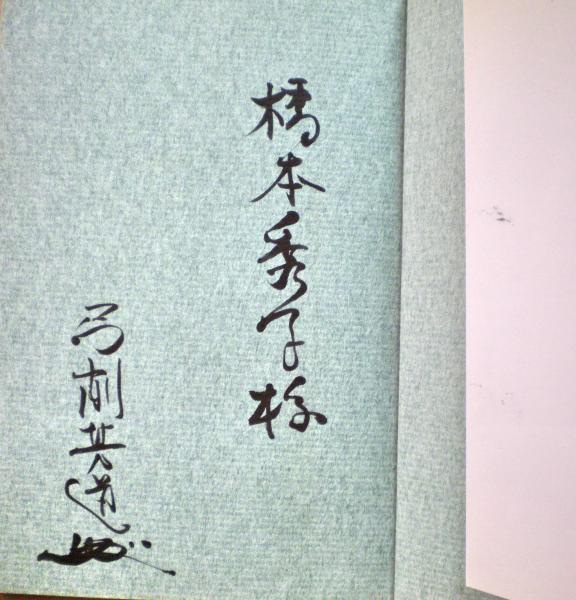 橋本秀子様
弓削其道